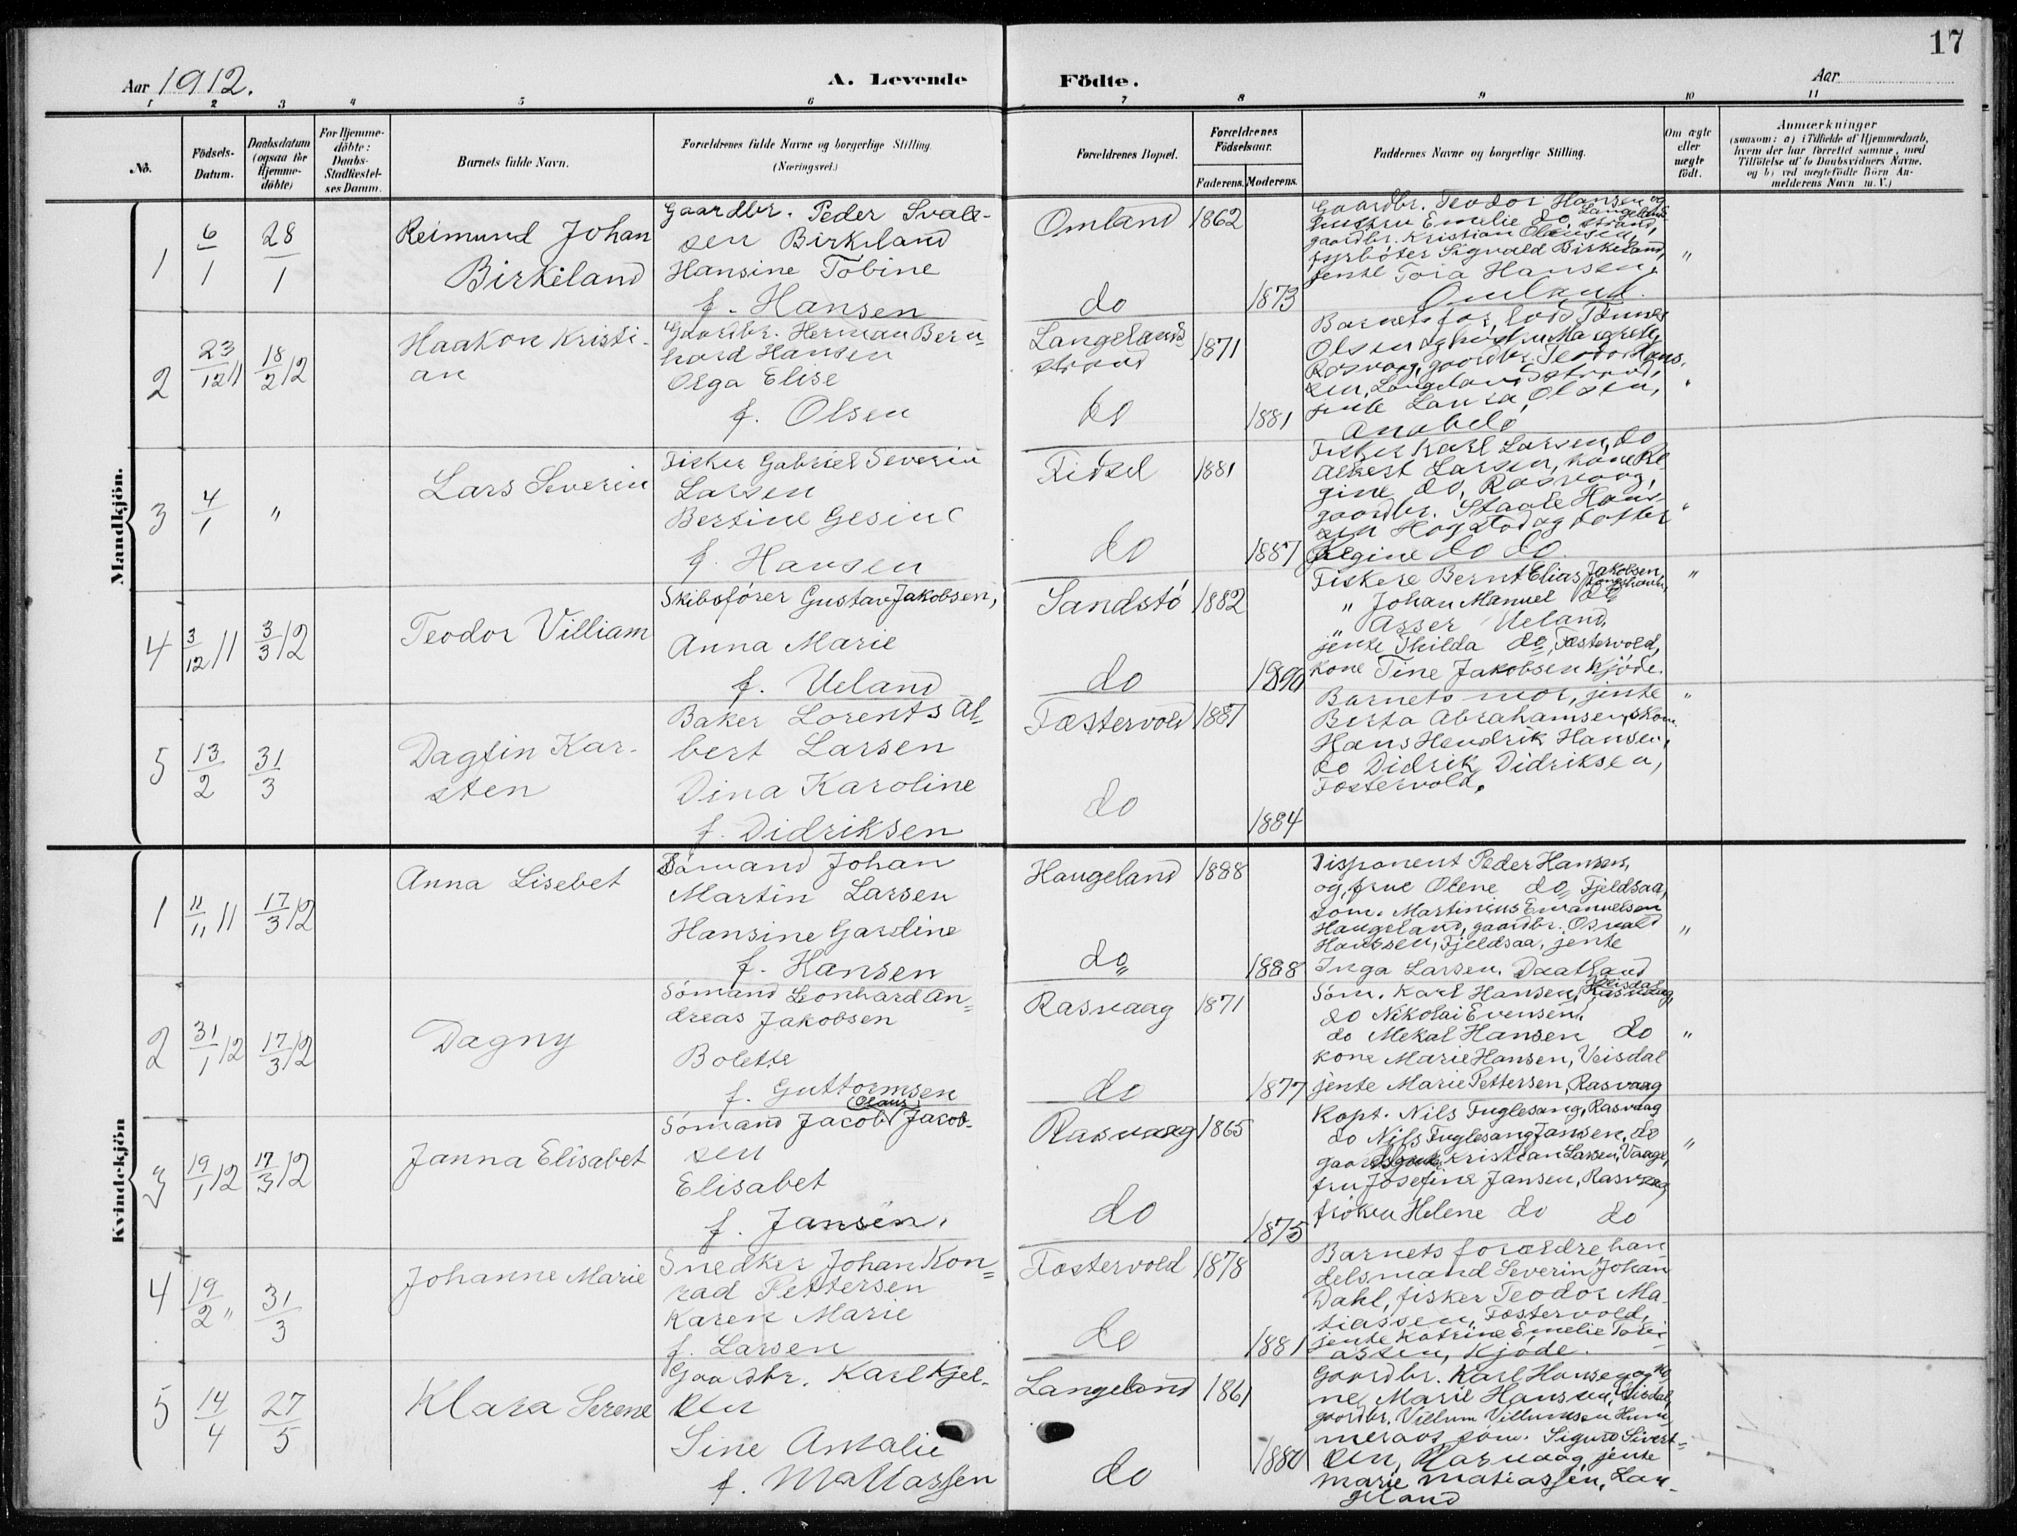 17
Aar 1912.
A. Levende Födte.
Aar
1 2 3 4 5 6 7 8 9 10 11
No.
Födsels-
Datum.
Daabsdatum
(ogsaa for
Hjemme-
döbte)
For Hjemme-
döbte:
Daabs-
Stadfæstel-
ses Datum.
Barnets fulde Navn.
Forældrenes fulde Navne og borgerlige Stilling.
(Næringsvei.)
Forældrenes Bopæl.
Forældrenes
Födselsaar.
Faderens. Moderens.
Faddernes Navne og borgerlige Stilling.
Om ægte
eller
uægte
födt.
Anmærkninger
(saasom: a) i Tilfælde af Hjemmedaab,
hvem der har forrettet samme, med
Tilföielse af to Daabsvidners Navne,
og b) ved uegtefödte Börn An-
melderens Navn m. V.)
Mandkjön.
1
6/1
28/1
Reimund Johan
Birkeland
Gaardbr. Peder Sval-
sen Birkeland
Hansine Tobine
f. Hansen
Omland
do
1862
1873
Gaardbr. Teodor Hansen og
hustru Emelie do, Langelands
strand,
gaardbr. Kristian Olausen,
fyrböter Sigvald Birkeland,
jente Tora Hansen,
Omland.
"
2
23/12 11
18/2 12
Haakon Kristi-
an
Gaardbr. Herman Bern-
hard Hansen
Olga Elise
f. Olsen
Langelands
strand
do
1871
1881
Barnets far, lods Tönnes
Olsen og hustru Margrete,
Rasvaag, gaardbr. Teodor Hans-
sen, Langelandsstrand,
jente Laura Olsen,
Anabelö
"
3
4/1
"
Lars Severin
Fisker Gabriel Severin
Larsen
Bertine Gesine
f. Hansen
Fidsel
do
1881
1887
Fisker Karl Larsen, do
Albert Larsen, kone Re
gine do, Rasvaag,
gaardbr. Staale Hans-
sen Hogstad og datter
Regine do do.
"
4
3/12 11
3/3 12
Teodor Villiam
Skibsfører Gustav Jakobsen,
Anna Marie
f. Ueland
Sandstö
do
1882
1890
Fiskere Bernt Elias Jakobsen
" Johan Manuel do
" Asser Ueland,
jente Thilda do, Fæstervold,
kone Tine Jakobsen Kjöde.
"
5
13/2
31/3
Dagfin Kar-
sten
Baker Lorents Al-
bert Larsen
Dina Karoline
f. Didriksen
Fæstervold
do
1887
1884
Barnets mor, jente
Berta Abrahamsen, skom.
Hans Hendrik Hansen,
do Didrik Didriksen,
Fæstervold.
"
Kvindekjön
1
11/11 11
17/3 12
Anna Lisebet
Sømand Johan
Martin Larsen
Hansine Gardine
f. Hansen
Haugeland
do
1888
1888
Disponent Peder Hansen,
og frue Olene do, Fjeldsaa,
söm. Martinius Emanuelsen
Haugeland, gaardbr. Osvald
Hanssen, Fjeldsaa, jente
Inga Larsen. Daatland
"
2
31/1 12
17/3 12
Dagny
Sömand Leonhard An-
dreas Jakobsen
Bolette
f. Guttormsen
Rasvaag
do
1871
1877
Söm. Karl Hansen, Veisdal
do Nikolai Evensen, Rasvaag,
do Mekal Hansen do
kone Marie Hansen, Veisdal
jente Marie Pettersen, Rasvaag
"
3
19/1 12
17/3 12
Janna Elisabet
Sömand Jacob Olaus Jacob-
sen
Elisabet
f. Jansen.
Rasvaag
do
1865
1875
Kapt. Nils Fuglesang, Rasvaag
do Nils Fuglesang Jansen, do
Kristian Larsen, Vaage,
fru Josefine Jansen, Rasvaag
fröken Helene do do
"
4
19/2 "
31/3
Johanne Marie
Snedker Johan Kon-
rad Pettersen
Karen Marie
f. Larsen
Fæstervold
do
1878
1881
Barnets forældre han-
delsmand Severin Johan
Dahl, fisker Teodor Ma-
tiassen, Fæstervold,
jente Katrine Emelie Tobi-
assen, Kjöde.
5
14/4
27/5
Klara Serene
Gaardbr. Karl Kjel-
sen
Sine Amalie
f. Mattiassen
Langeland
do
1861
1880
Gaardbr. Karl Hansen og ko
ne Marie Hanssen, Veisdal,
gaardbr. Villum Villumsen Hum-
meraas söm. Sigurd Sivert-
sen, Rasvaag, jente
Marie Matiassen, Lan-
geland